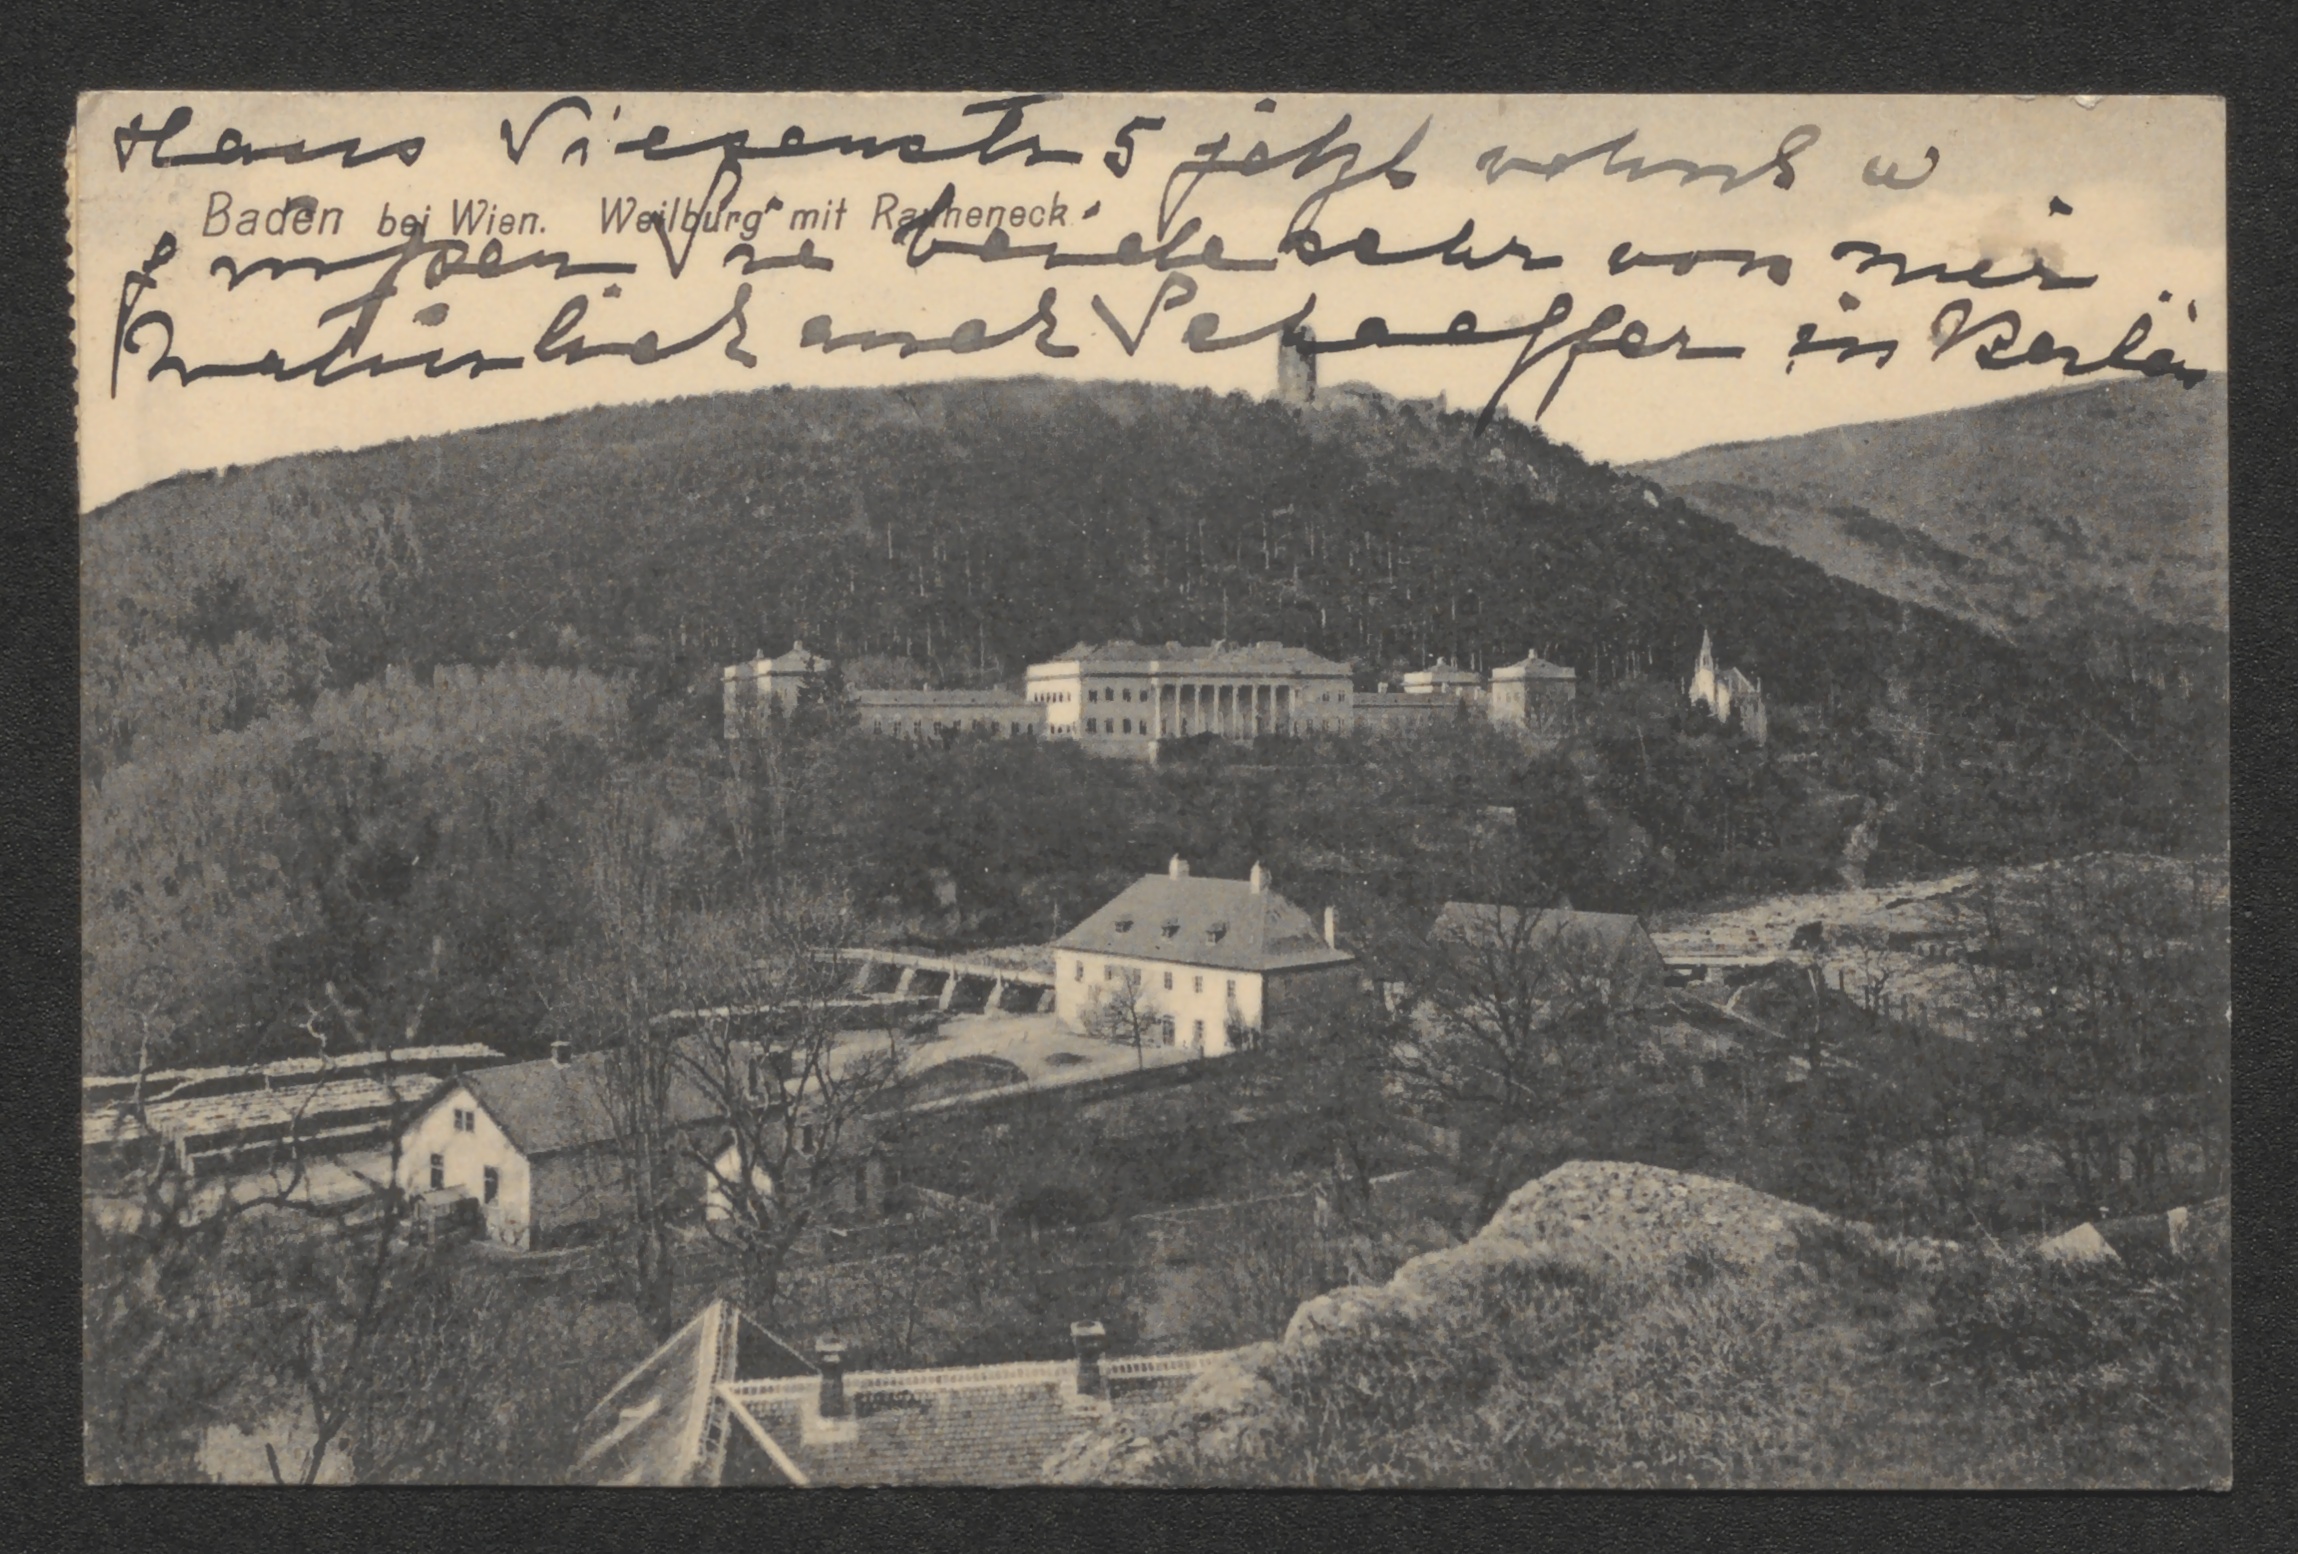 Haus Siegenstr 5 jetzt wohnt u
Baden bei Wien. Weilburg mit Rauheneck.
grüßen Sie beide sehr von mir
natürlich auch Schaeffer in Berlin